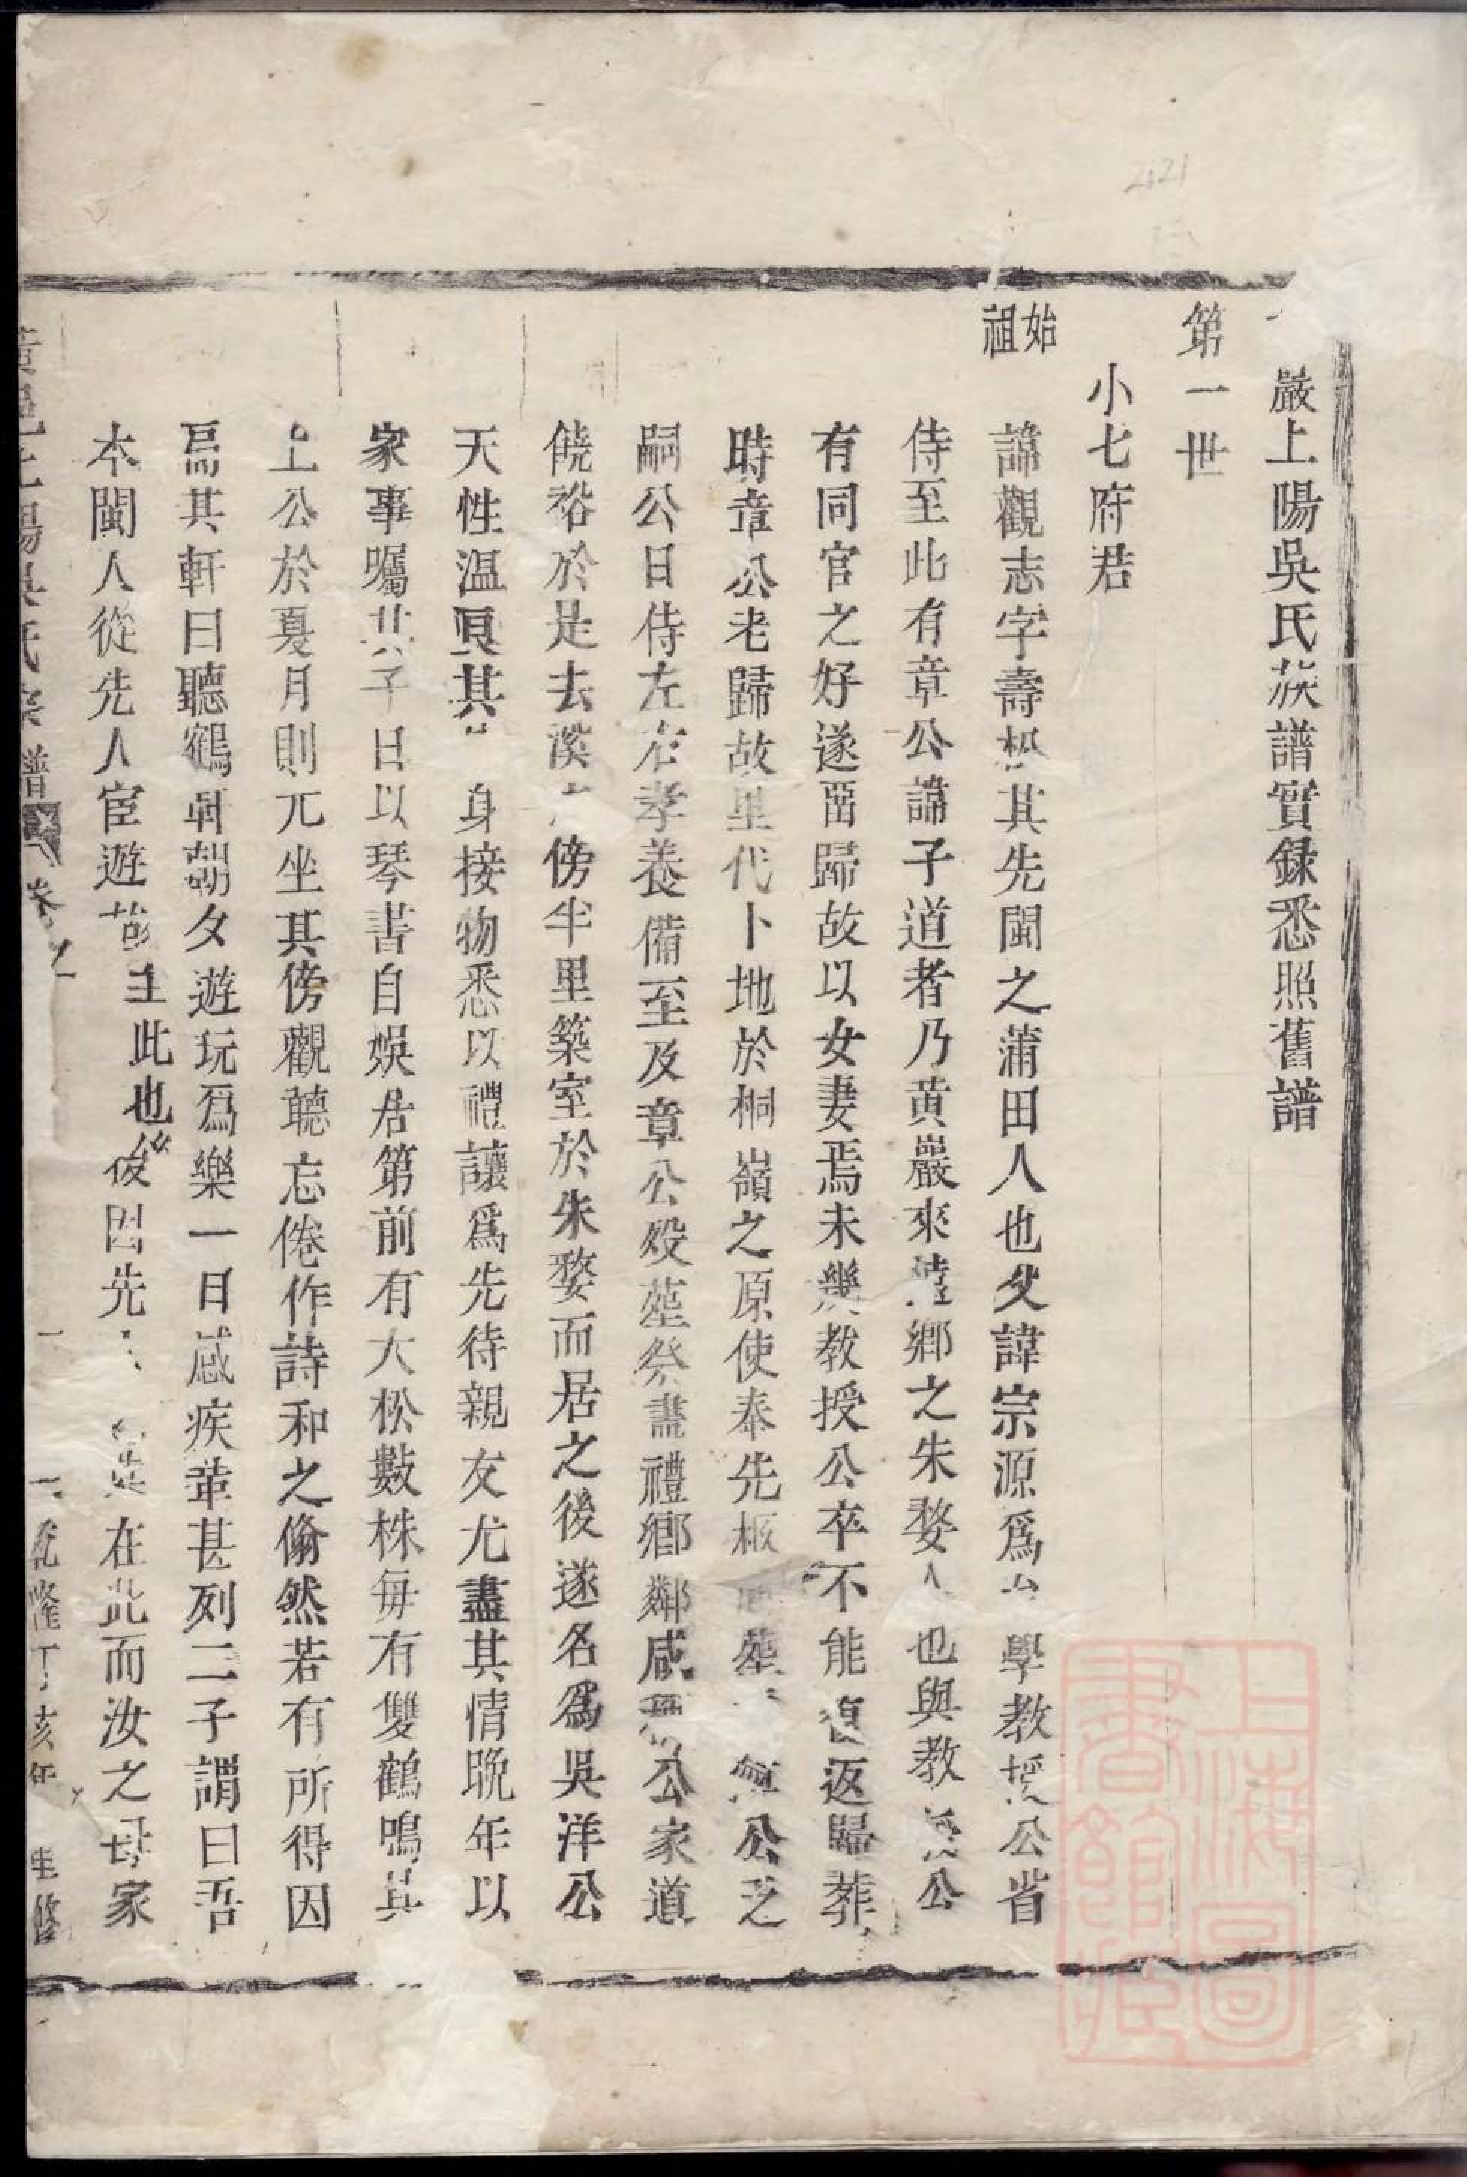 嚴上陽吳氏族譜實錄悉照舊譜
第一世
小七府君
始祖
諱觀志字壽松其先閩之蒲田人也父諱宗源爲 學教授公省
侍至此有章公諱子道者乃黃巖來遠鄉之朱婺人也與教授公
有同官之好遂畱歸故以女妻焉未幾教授公卒不能復返歸葬
時章公老歸故里代卜地於桐嶺之原使奉先柩 葬 公乏
嗣公日侍左右孝養備至及章公歿塟祭盡禮鄉鄰咸稱公家道
饒裕於是去溪 傍半里築室於朱婺而居之後遂名爲吳洋公
天性溫 其 身接物悉以禮讓爲先待親友尤盡其情晚年以
家事囑其子日以琴書自娛居第前有大松數株每有雙鶴鳴其
上公於夏月則兀坐其傍觀聽忘倦作詩和之偷然若有所得因
扁其軒曰聽鶴軒朝夕遊玩爲樂一日感疾革甚列二子謂曰吾
本閩人從先人宦遊故 此也後因先 在此而汝之母家
譜 卷之 一 乾隆丁亥年 修
上海圖書館藏